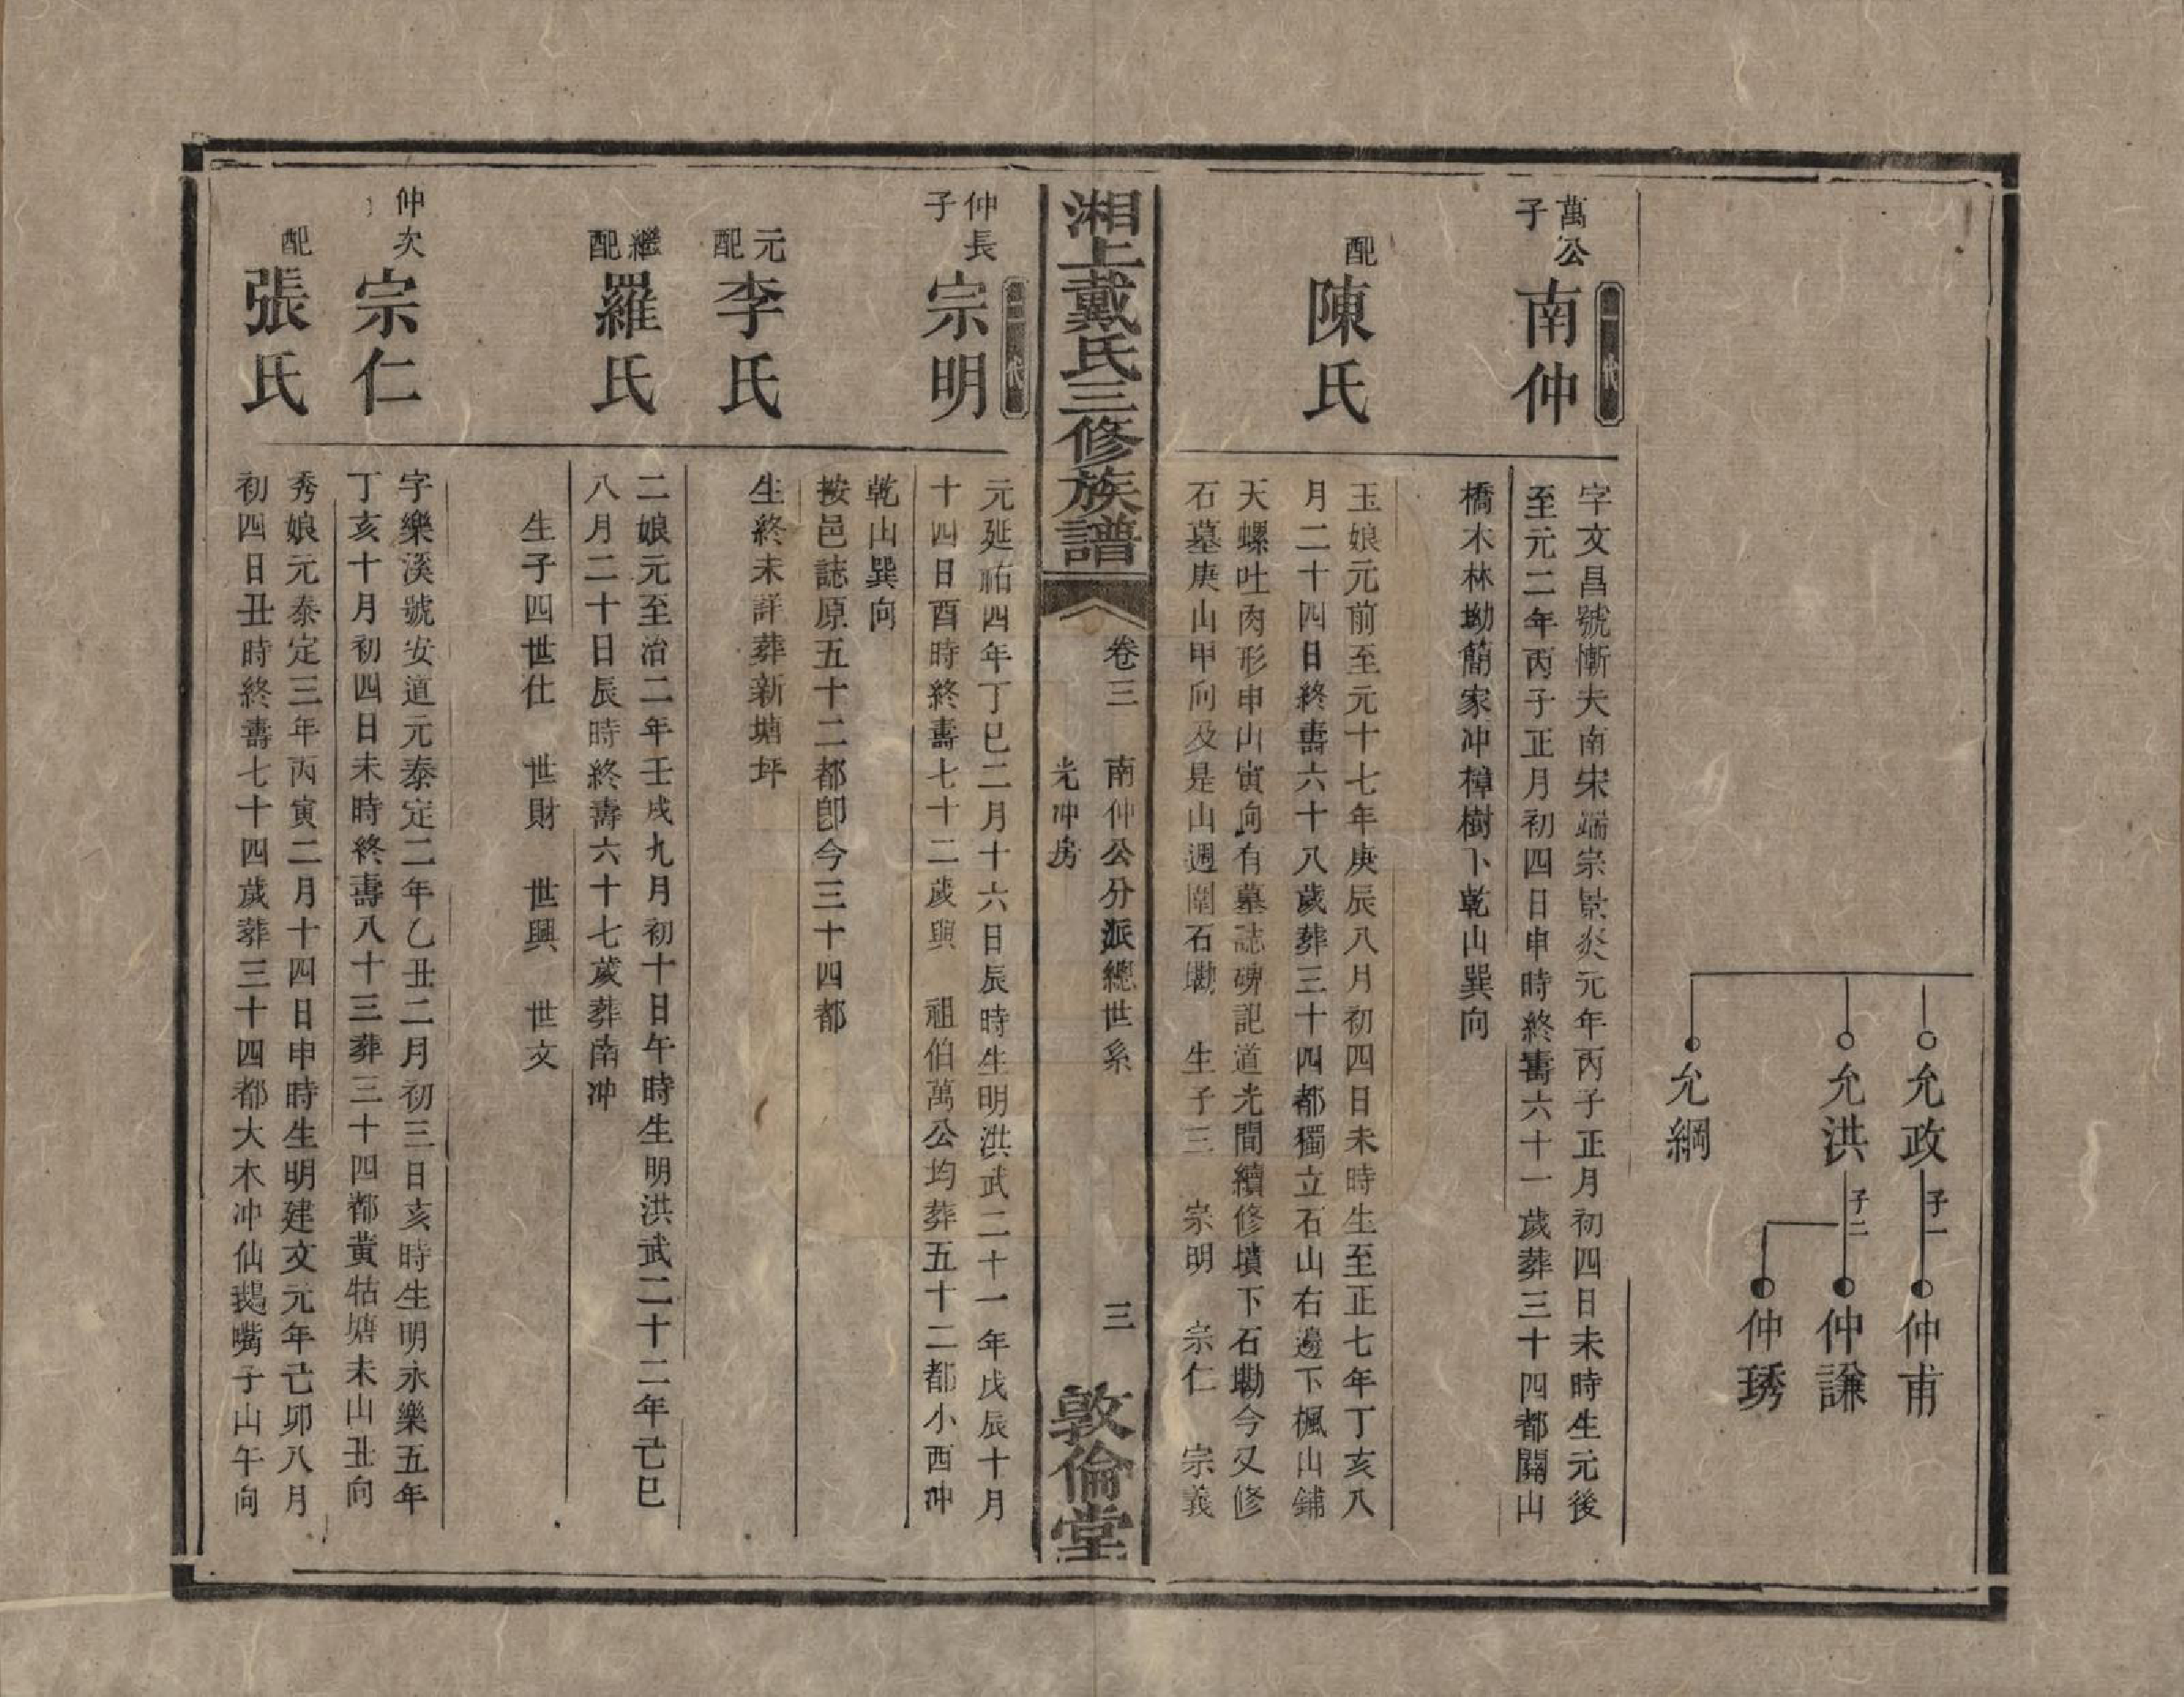 允政 子一 仲甫
允洪 子二 仲謙
仲琇
允綱
代
萬公
子
南仲
字文昌號慚夫南宋端宗景炎元年丙子正月初四日未時生元後
至元二年丙子正月初四日申時終壽六十一歲葬三十四都關山
橋木林坳簡家冲樟樹下乾山巽向
配
陳氏
玉娘元前至元十七年庚辰八月初四日未時生至正七年丁亥八
月二十四日終壽六十八歲葬三十四都獨立石山右邊下楓山鋪
天螺吐肉形申山寅向有墓誌碑記道光間續修墳下石磡今又修
石墓庚山甲向及是山週圍石磡 生子三 宗明 宗仁 宗義
湘上戴氏三修族譜
卷三 南仲公分派總世系 三
光冲房
敦倫堂
代
仲長
子
宗明
元延祐四年丁巳二月十六日辰時生明洪武二十一年戊辰十月
十四日酉時終壽七十二歲與 祖伯萬公均葬五十二都小西冲
乾山巽向
按邑誌原五十二都卽今三十四都
元
配
李氏
生終未詳葬新塘坪
繼
配
羅氏
二娘元至治二年壬戌九月初十日午時生明洪武二十二年己巳
八月二十日辰時終壽六十七歲葬南冲
生子四世仕 世財 世興 世文
仲次
宗仁
字樂溪號安道元泰定二年乙丑二月初三日亥時生明永樂五年
丁亥十月初四日未時終壽八十三葬三十四都黄牯塘未山丑向
配
張氏
秀娘元泰定三年丙寅二月十四日申時生明建文元年己卯八月
初四日丑時終壽七十四歲葬三十四都大木冲仙鵝嘴子山午向